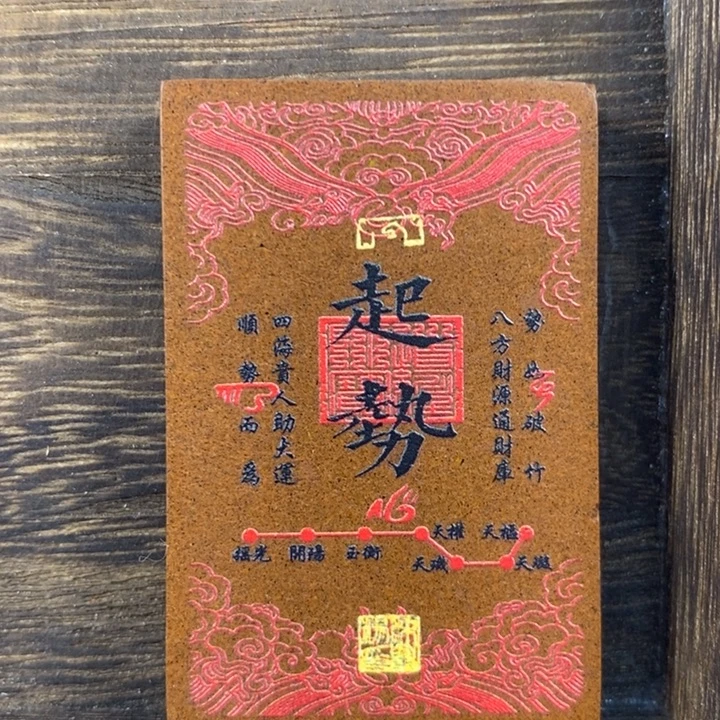 起勢
勢如破竹
八方財源通財庫
四海貴人助大運
順勢而為
搖光 開陽 玉衡 天權 天樞
天璣 天璇